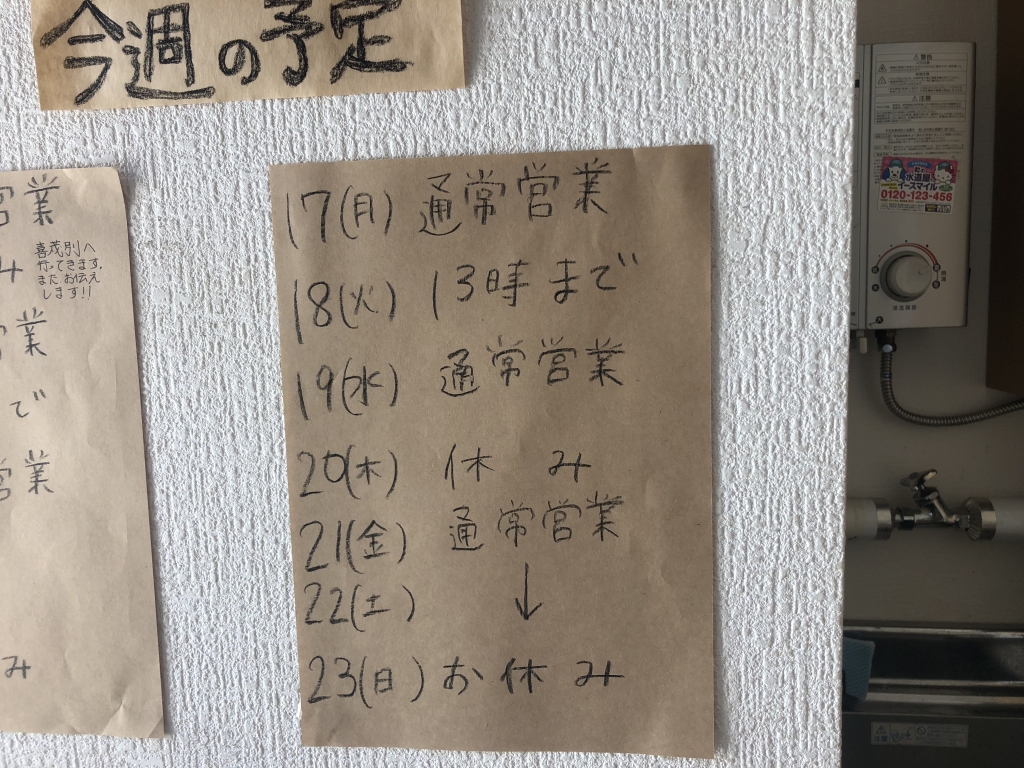 今週の予定
営業
み
喜茂別へ
行ってきます。
またお伝え
します!!
業
で
営業
み
17(月) 通常営業
18(火) 13時まで
19(水) 通常営業
20(木) 休み
21(金) 通常営業
22(土) ↓
23(日) お休み
警告
注意
水道屋
イースマイル
0120-123-456
注意